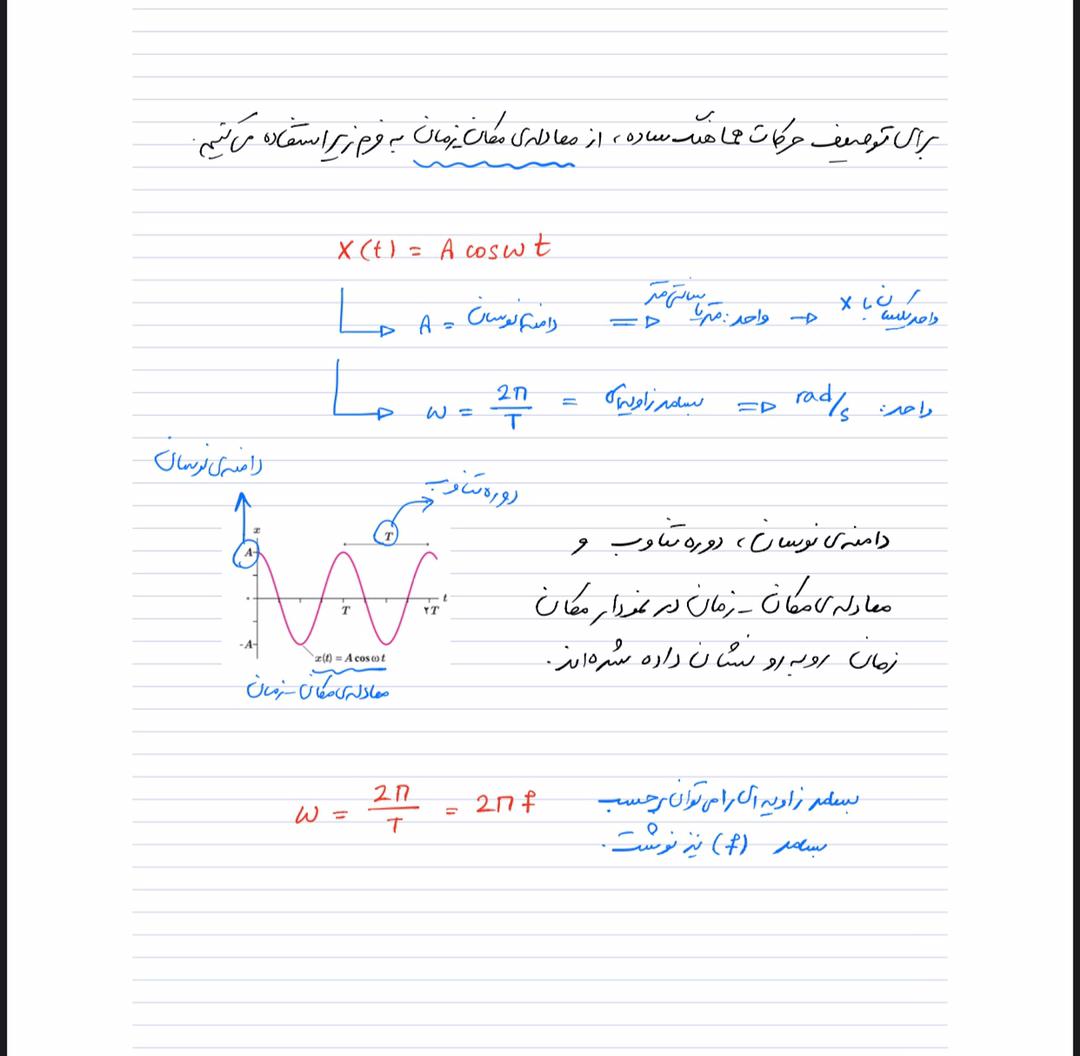 برای توصیف حرکات هماهنگ ساده، از معادله‌ی مکان زمان به فرم زیر استفاده می‌کنیم.
x(t) = A cos ωt
A = دامنه‌ی نوسان ⇒ واحد: متر یا سانتی‌متر → واحد یکسان با x
ω = 2π/T = بسامد زاویه‌ای ⇒ واحد: rad/s
دامنه‌ی نوسان
دوره تناوب
x
A
T
-A
T
۲T
t
x(t) = A cos ωt
معادله‌ی مکان - زمان
دامنه‌ی نوسان، دوره تناوب و
معادله‌ی مکان - زمان در نمودار مکان
زمان روبه‌رو نشان داده شده‌اند.
ω = 2π/T = 2πf
بسامد زاویه‌ای را می‌توان برحسب
بسامد (f) نیز نوشت.